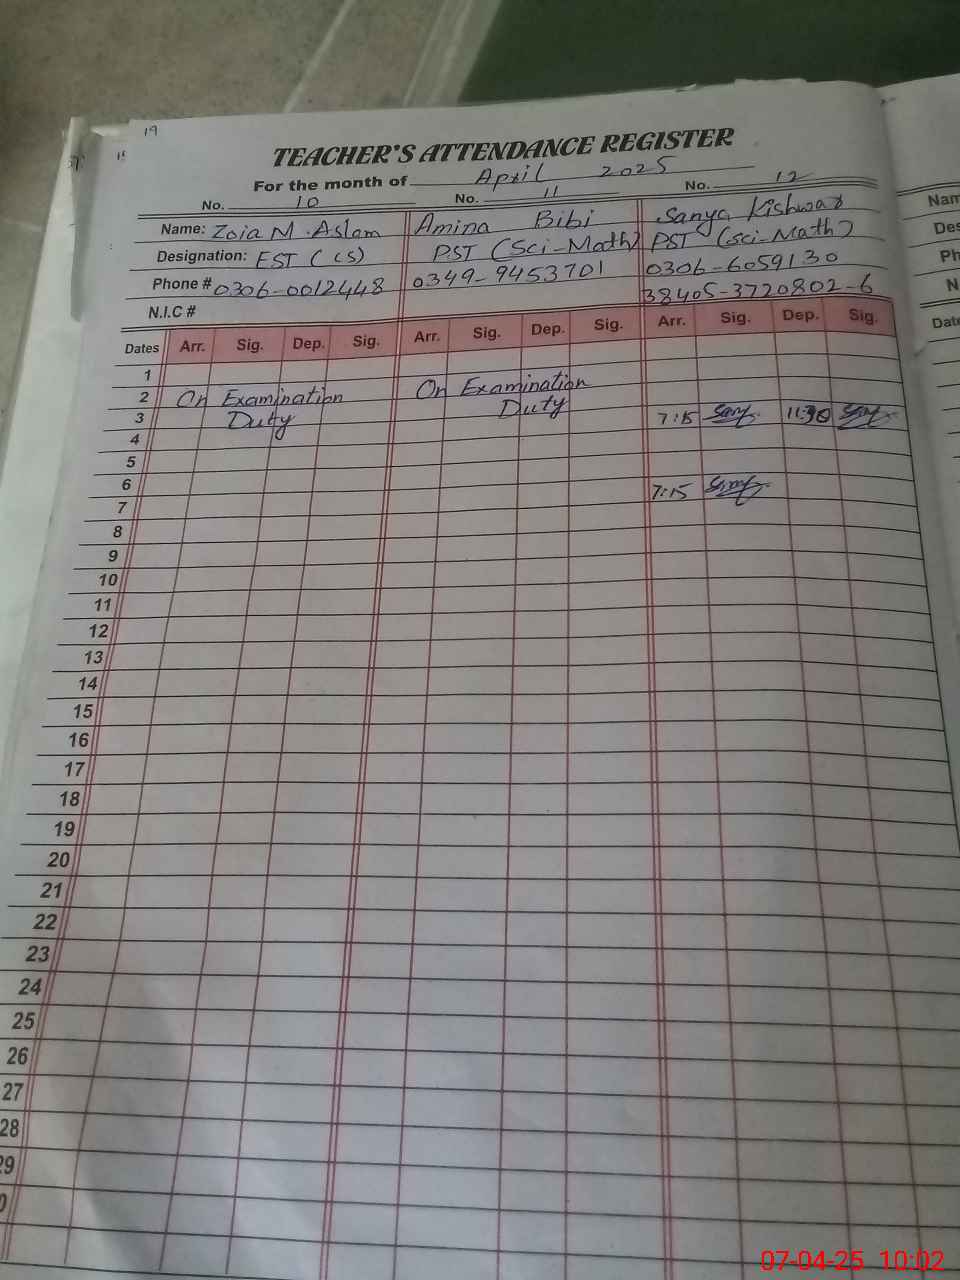 19
15
TEACHER'S ATTENDANCE REGISTER
For the month of April 2025
No. 10 No. 11 No. 12
Name: Zoia M. Aslam Amina Bibi Sanya Kishwar
Designation: EST (CS) PST (Sci-Math) PST (Sci-Math)
Phone # 0306-0012448 0349-9453701 0306-6059130
N.I.C # 38405-3720802-6
Dates Arr. Sig. Dep. Sig. Arr. Sig. Dep. Sig. Arr. Sig. Dep. Sig.
1
2 On Examination On Examination
3 Duty Duty 7:15 11:30
4
5
6
7 7:15
8
9
10
11
12
13
14
15
16
17
18
19
20
21
22
23
24
25
26
27
28
29
0
Nam
Des
Ph
N
Date
07-04-25 10:02